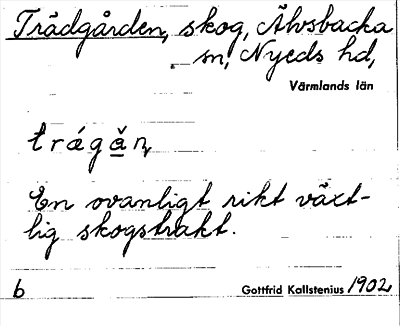 Trädgården, skog, Älvsbacka
sn, Nyeds hd,
Värmlands län
trágạ̈n,
En ovanligt rikt växt-
lig skogstrakt.
b Gottfrid Kallstenius 1902